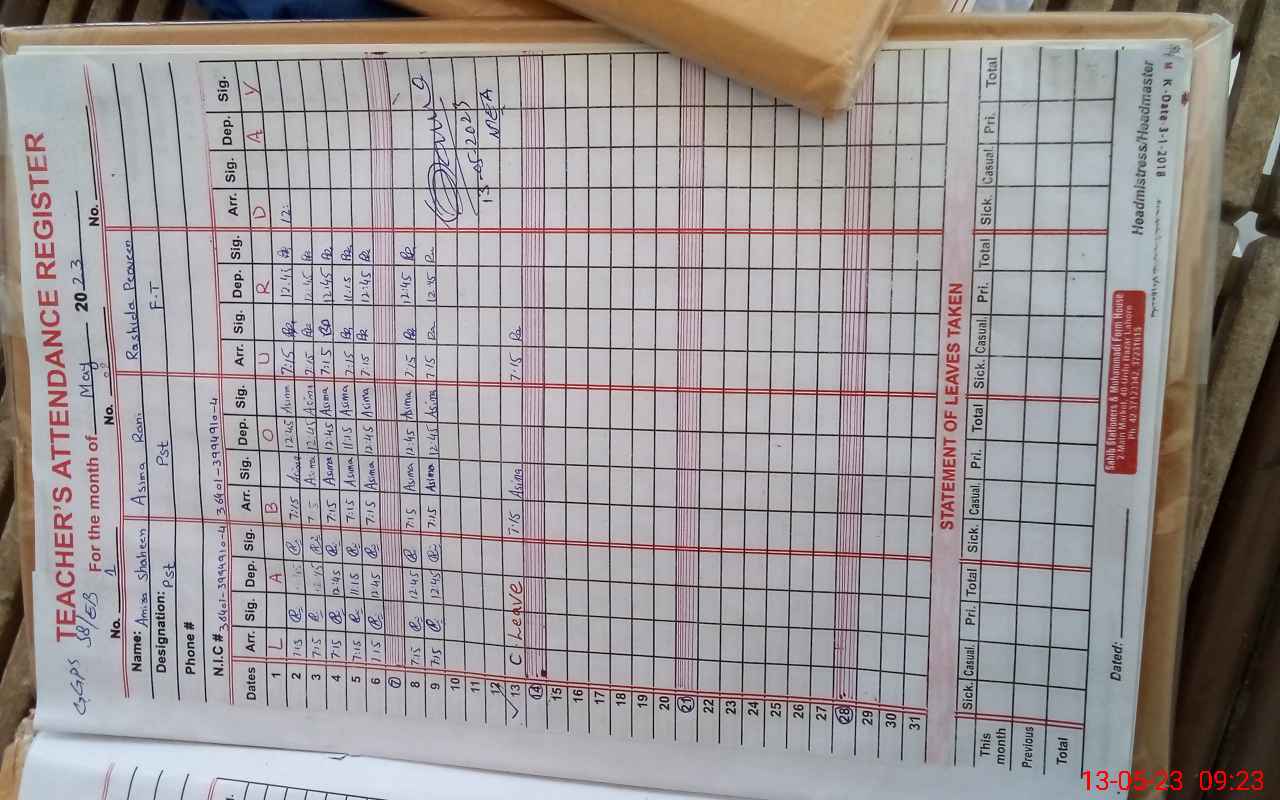 TEACHER'S ATTENDANCE REGISTER
GGPS 58/EB For the month of May 2023
No. 1 No. 02 No.
Name: Amisa Shaheen Asima Rani Rashida Perveen
Designation: Pst Pst F.T
Phone #
N.I.C # 36401-3994910-4 36401-3994910-4
Dates Arr. Sig. Dep. Sig. Arr. Sig. Dep. Sig. Arr. Sig. Dep. Sig. Arr. Sig. Dep. Sig.
1 L A B O U R D A Y
2 7:15 12:45 7:15 Asima 12:45 Asima 7:15 12:45 12:
3 7:15 12:45 7:15 Asima 12:45 Asima 7:15 12:45
4 7:15 12:45 7:15 Asima 12:45 Asima 7:15 12:45
5 7:15 11:15 7:15 Asima 11:15 Asima 7:15 11:15
6 7:15 12:45 7:15 Asima 12:45 Asima 7:15 12:45
7
8 7:15 12:45 7:15 Asima 12:45 Asima 7:15 12:45
9 7:15 12:45 7:15 Asima 12:45 Asima 7:15 12:45
10
11 13-05-2023
12 MEA
13 C Leave 7:15 Asima 7:15
14
15
16
17
18
19
20
21
22
23
24
25
26
27
28
29
30
31
STATEMENT OF LEAVES TAKEN
Sick. Casual. Pri. Total Sick. Casual. Pri. Total Sick. Casual. Pri. Total Sick. Casual. Pri. Total
This month
Previous
Total
Dated:
Sahib Stationers & Muhammadi Form House
2-Main Market, 40-Urdu Bazar Lahore
Ph: 42-37123342, 37231615
Headmistress/Headmaster
K.Date-3-1-2018
13-05-23 09:23